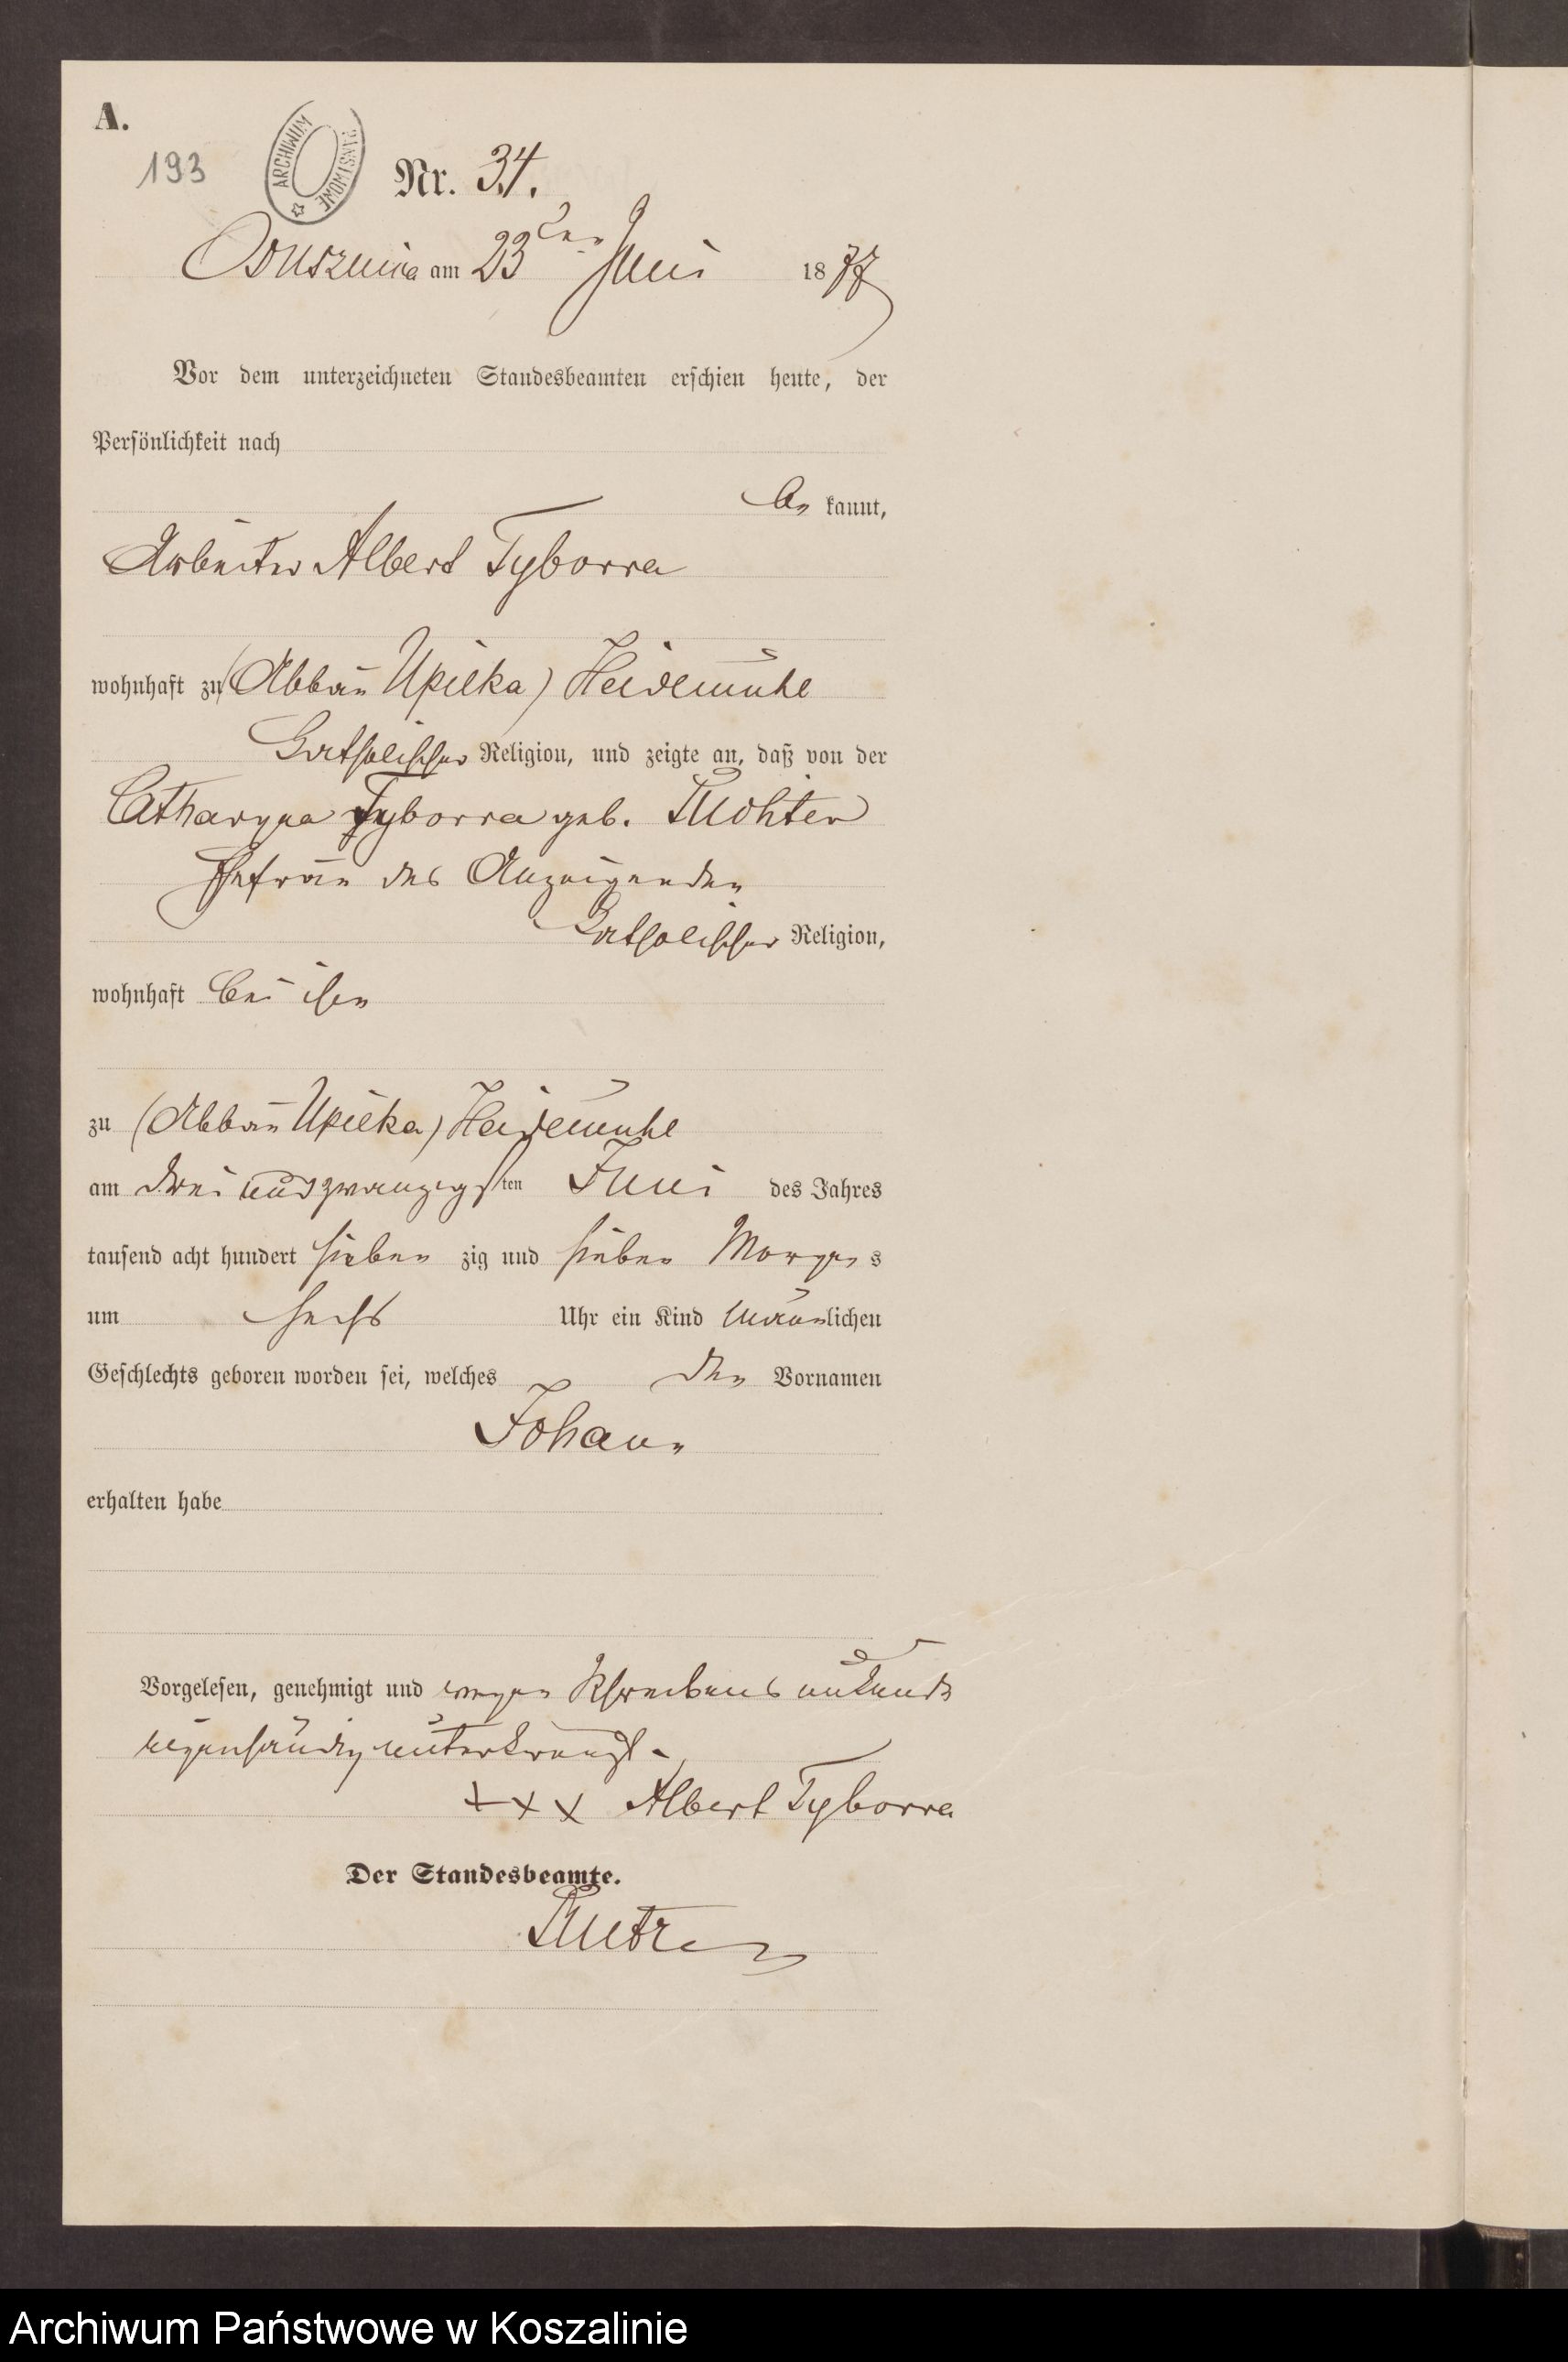 A.
193
ARCHIWUM PAŃSTWOWE
Nr. 34.
Ossusznica am 23ten Juni 1877
Vor dem unterzeichneten Standesbeamten erschien heute, der
Persönlichkeit nach
be kannt,
Arbeiter Albert Tyborra
wohnhaft zu (Abbau Upilka) Heidemühl
katholischer Religion, und zeigte an, daß von der
Catharyna Tyborra geb.
Ehefrau des Anzeigenden
katholischer Religion,
wohnhaft bei ihm
zu (Abbau Upilka) Heidemühl
am drei und zwanzigsten Juni des Jahres
tausend acht hundert sieben zig und sieben Morgens
um sechs Uhr ein Kind männlichen
Geschlechts geboren worden sei, welches den Vornamen
Johann
erhalten habe
Vorgelesen, genehmigt und wegen Schreibens unkunde
eigenhändig unterkreuzt.
+++ Albert Tyborra
Der Standesbeamte.
Archiwum Państwowe w Koszalinie